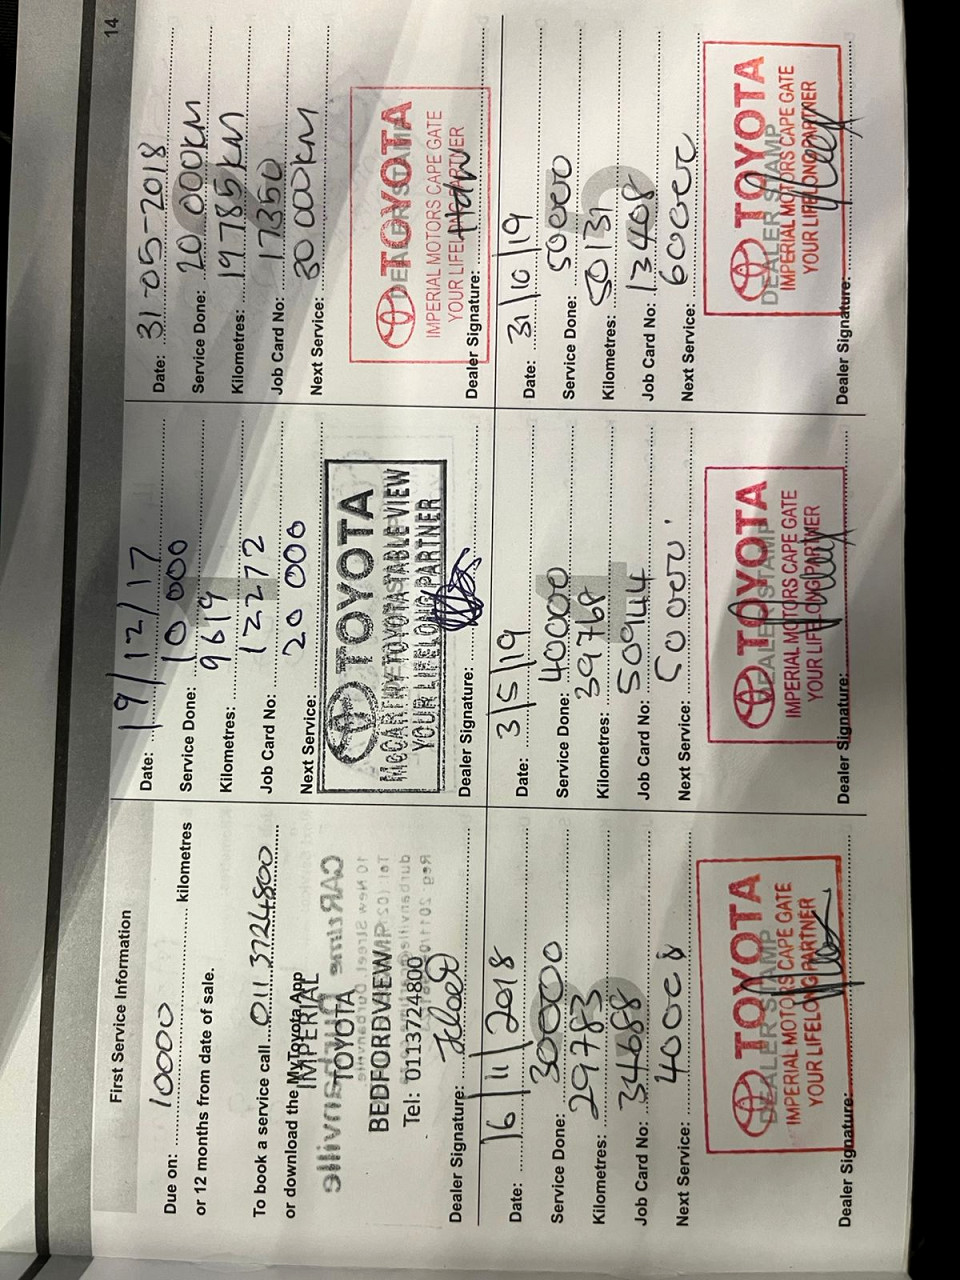 14
First Service Information
Due on: 10000 kilometres
or 12 months from date of sale.
To book a service call 011 3724800
or download the MyToyota App
IMPERIAL
TOYOTA
BEDFORDVIEW
Tel: 0113724800
Dealer Signature:
1
Date: 19/12/17
Service Done: 10 000
Kilometres: 9619
Job Card No: 12272
Next Service: 20 000
TOYOTA
McCARTHY TOYOTA STABLE VIEW
YOUR LIFELONG PARTNER
Dealer Signature:
2
Date: 31-05-2018
Service Done: 20 000KM
Kilometres: 19785KM
Job Card No: 17350
Next Service: 30 000KM
DEALER STAMP
TOYOTA
IMPERIAL MOTORS CAPE GATE
YOUR LIFELONG PARTNER
Dealer Signature:
3
Date: 16/11/2018
Service Done: 30000
Kilometres: 29783
Job Card No: 34688
Next Service: 40000
DEALER STAMP
TOYOTA
IMPERIAL MOTORS CAPE GATE
YOUR LIFELONG PARTNER
Dealer Signature:
4
Date: 3/5/19
Service Done: 40000
Kilometres: 39768
Job Card No: 50944
Next Service: 50000
DEALER STAMP
TOYOTA
IMPERIAL MOTORS CAPE GATE
YOUR LIFELONG PARTNER
Dealer Signature:
5
Date: 31/10/19
Service Done: 50000
Kilometres: 50131
Job Card No: 13408
Next Service: 60000
DEALER STAMP
TOYOTA
IMPERIAL MOTORS CAPE GATE
YOUR LIFELONG PARTNER
Dealer Signature: